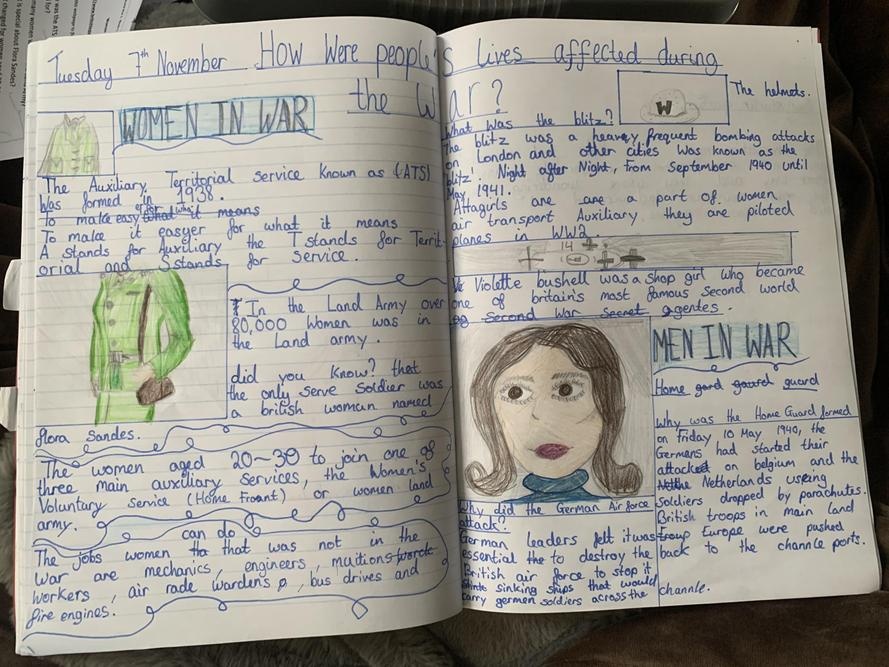 Tuesday 7th November How Were people's lives affected during
the War?
WOMEN IN WAR
The Auxiliary Territorial Service known as (ATS)
Was formed in 1938.
To make easy for what it means
To make it easyer for what it means
A stands for Auxiliary the T stands for Territ-
orial and S stands for Service.
In the Land Army over
80,000 Women was in
the Land army.
did you know? that
the only serve soldier was
a british woman named
flora Sandes.
The women aged 20~30 to join one of
three main auxiliary services, the Women's
Voluntary Service (Home Froant) or women land
army.
can do
The jobs women tha that was not in the
war are mechanics, engineers, muitions
workers, air rade wardens, bus drives and
fire engines.
W
The helmets.
What Was the blitz?
The blitz was a heavey frequent bombing attacks
on London and other cities Was known as the
blitz. Night after Night, from September 1940 until
May 1941.
Attagirls are are a part of women
air transport Auxiliary. they are piloted
planes in WW2.
14
Violette bushell was a Shop girl who became
one of britain's most famous Second world
Second War secret agentes.
Why did the German Air force
attack?
German leaders felt it was
essential the to destroy the
British air force to stop it
sinking ships that would
carry germen soldiers across the
channle.
MEN IN WAR
Home gard gouard guard
Why was the Home Guard formed
on friday 10 May 1940, the
Germens had started their
attacked on belgium and the
Netherlands useing
Soldiers dropped by parachutes.
British troops in main land
troup Europe were pushed
back to the channle ports.